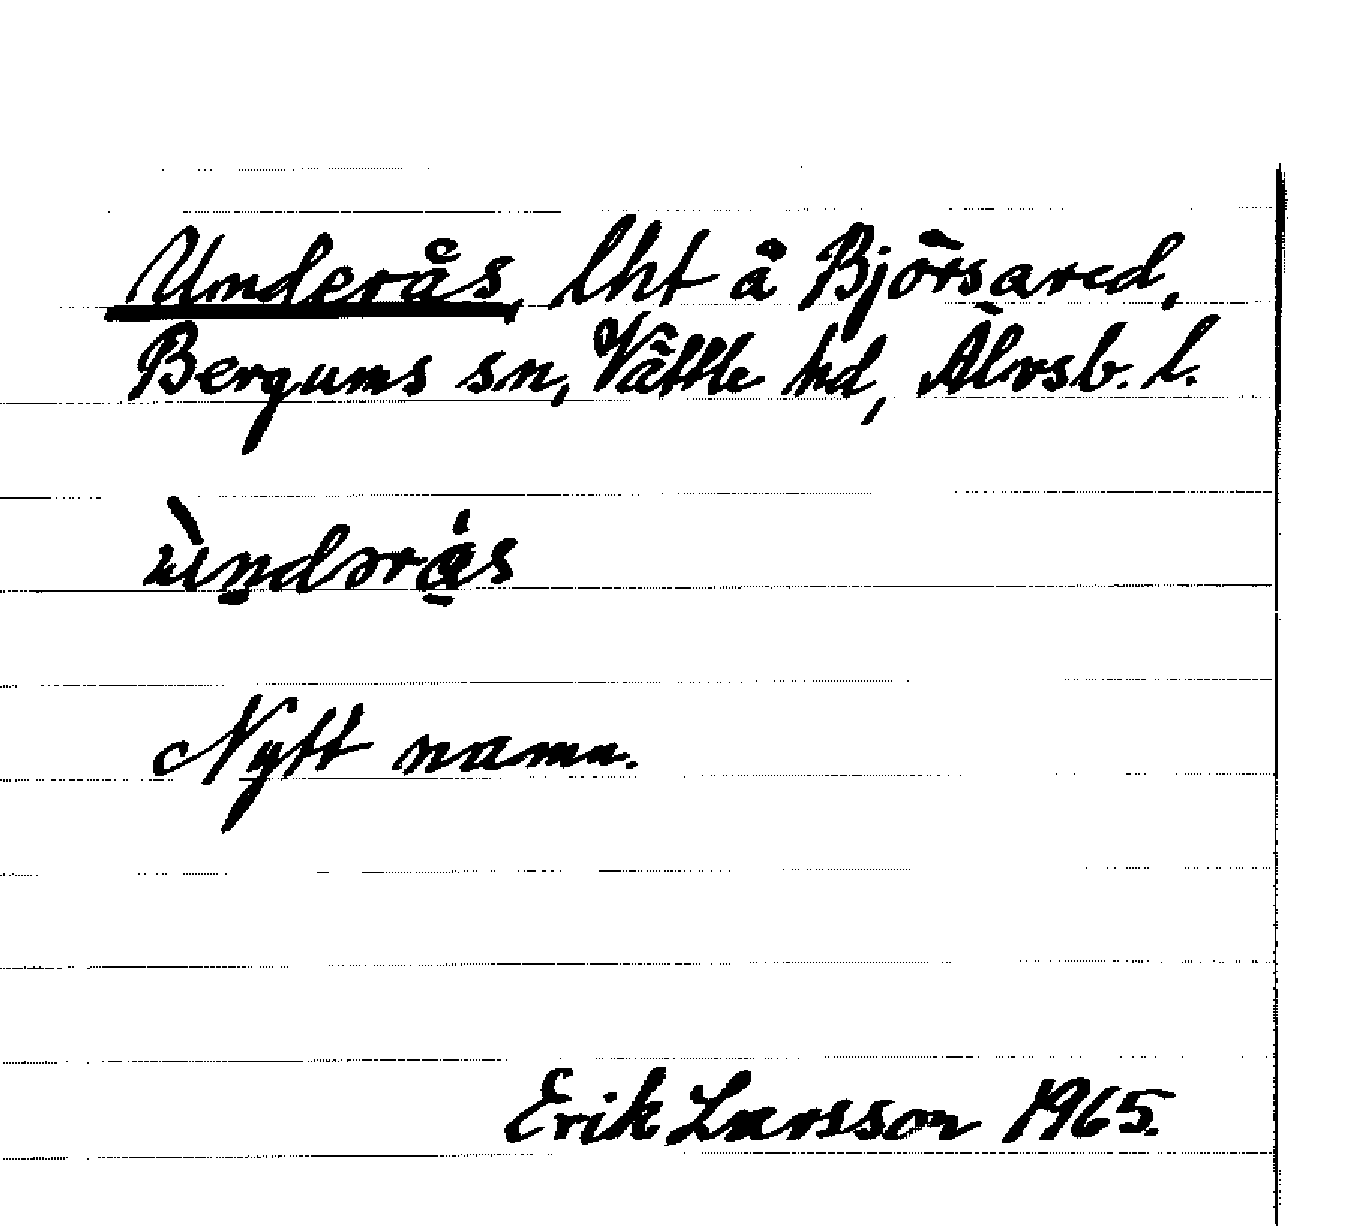 Underås, lht å Björsared,
Bergums sn, Vättle hd, Älvsb. l.
ùndəråś
Nytt namn.
Erik Larsson 1965.